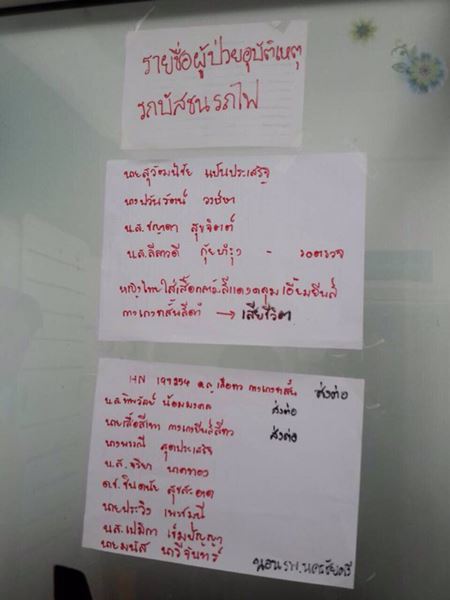 รายชื่อผู้ป่วยอุบัติเหตุ
รถบัสชนรถไฟ
นายสุวัฒน์ชัย แป้นประเสริฐ
นางปวันรัตน์ วงษ์ษา
น.ส. ชญาดา สุขจิตต์
น.ส. ลีลาวดี กุ้ยบำรุง - รอตรวจ
หญิงไทยใส่เสื้อกล้ามสีแดงคลุมเอี๊ยมยีนส์
กางเกงขาสั้นสีดำ → เสียชีวิต
HN 197254 ด.ญ เสื้อขาว กางเกงขาสั้น ส่งต่อ
น.ส. ทิพวัลย์ น้อมมงคล ส่งต่อ
นายเสื้อสีเทา กางเกงยีนส์สีขาว ส่งต่อ
นางพรรณี สุดประเสริฐ
น.ส. จริยา นาคทอง
ด.ช. ชินดนัย สุขสะอาด
นายประวิง เพชรมณี
น.ส. เปมิกา เข็มปัญญา
นายมนัส นาวีจันทร์
นอน รพ. นครชัยศรี